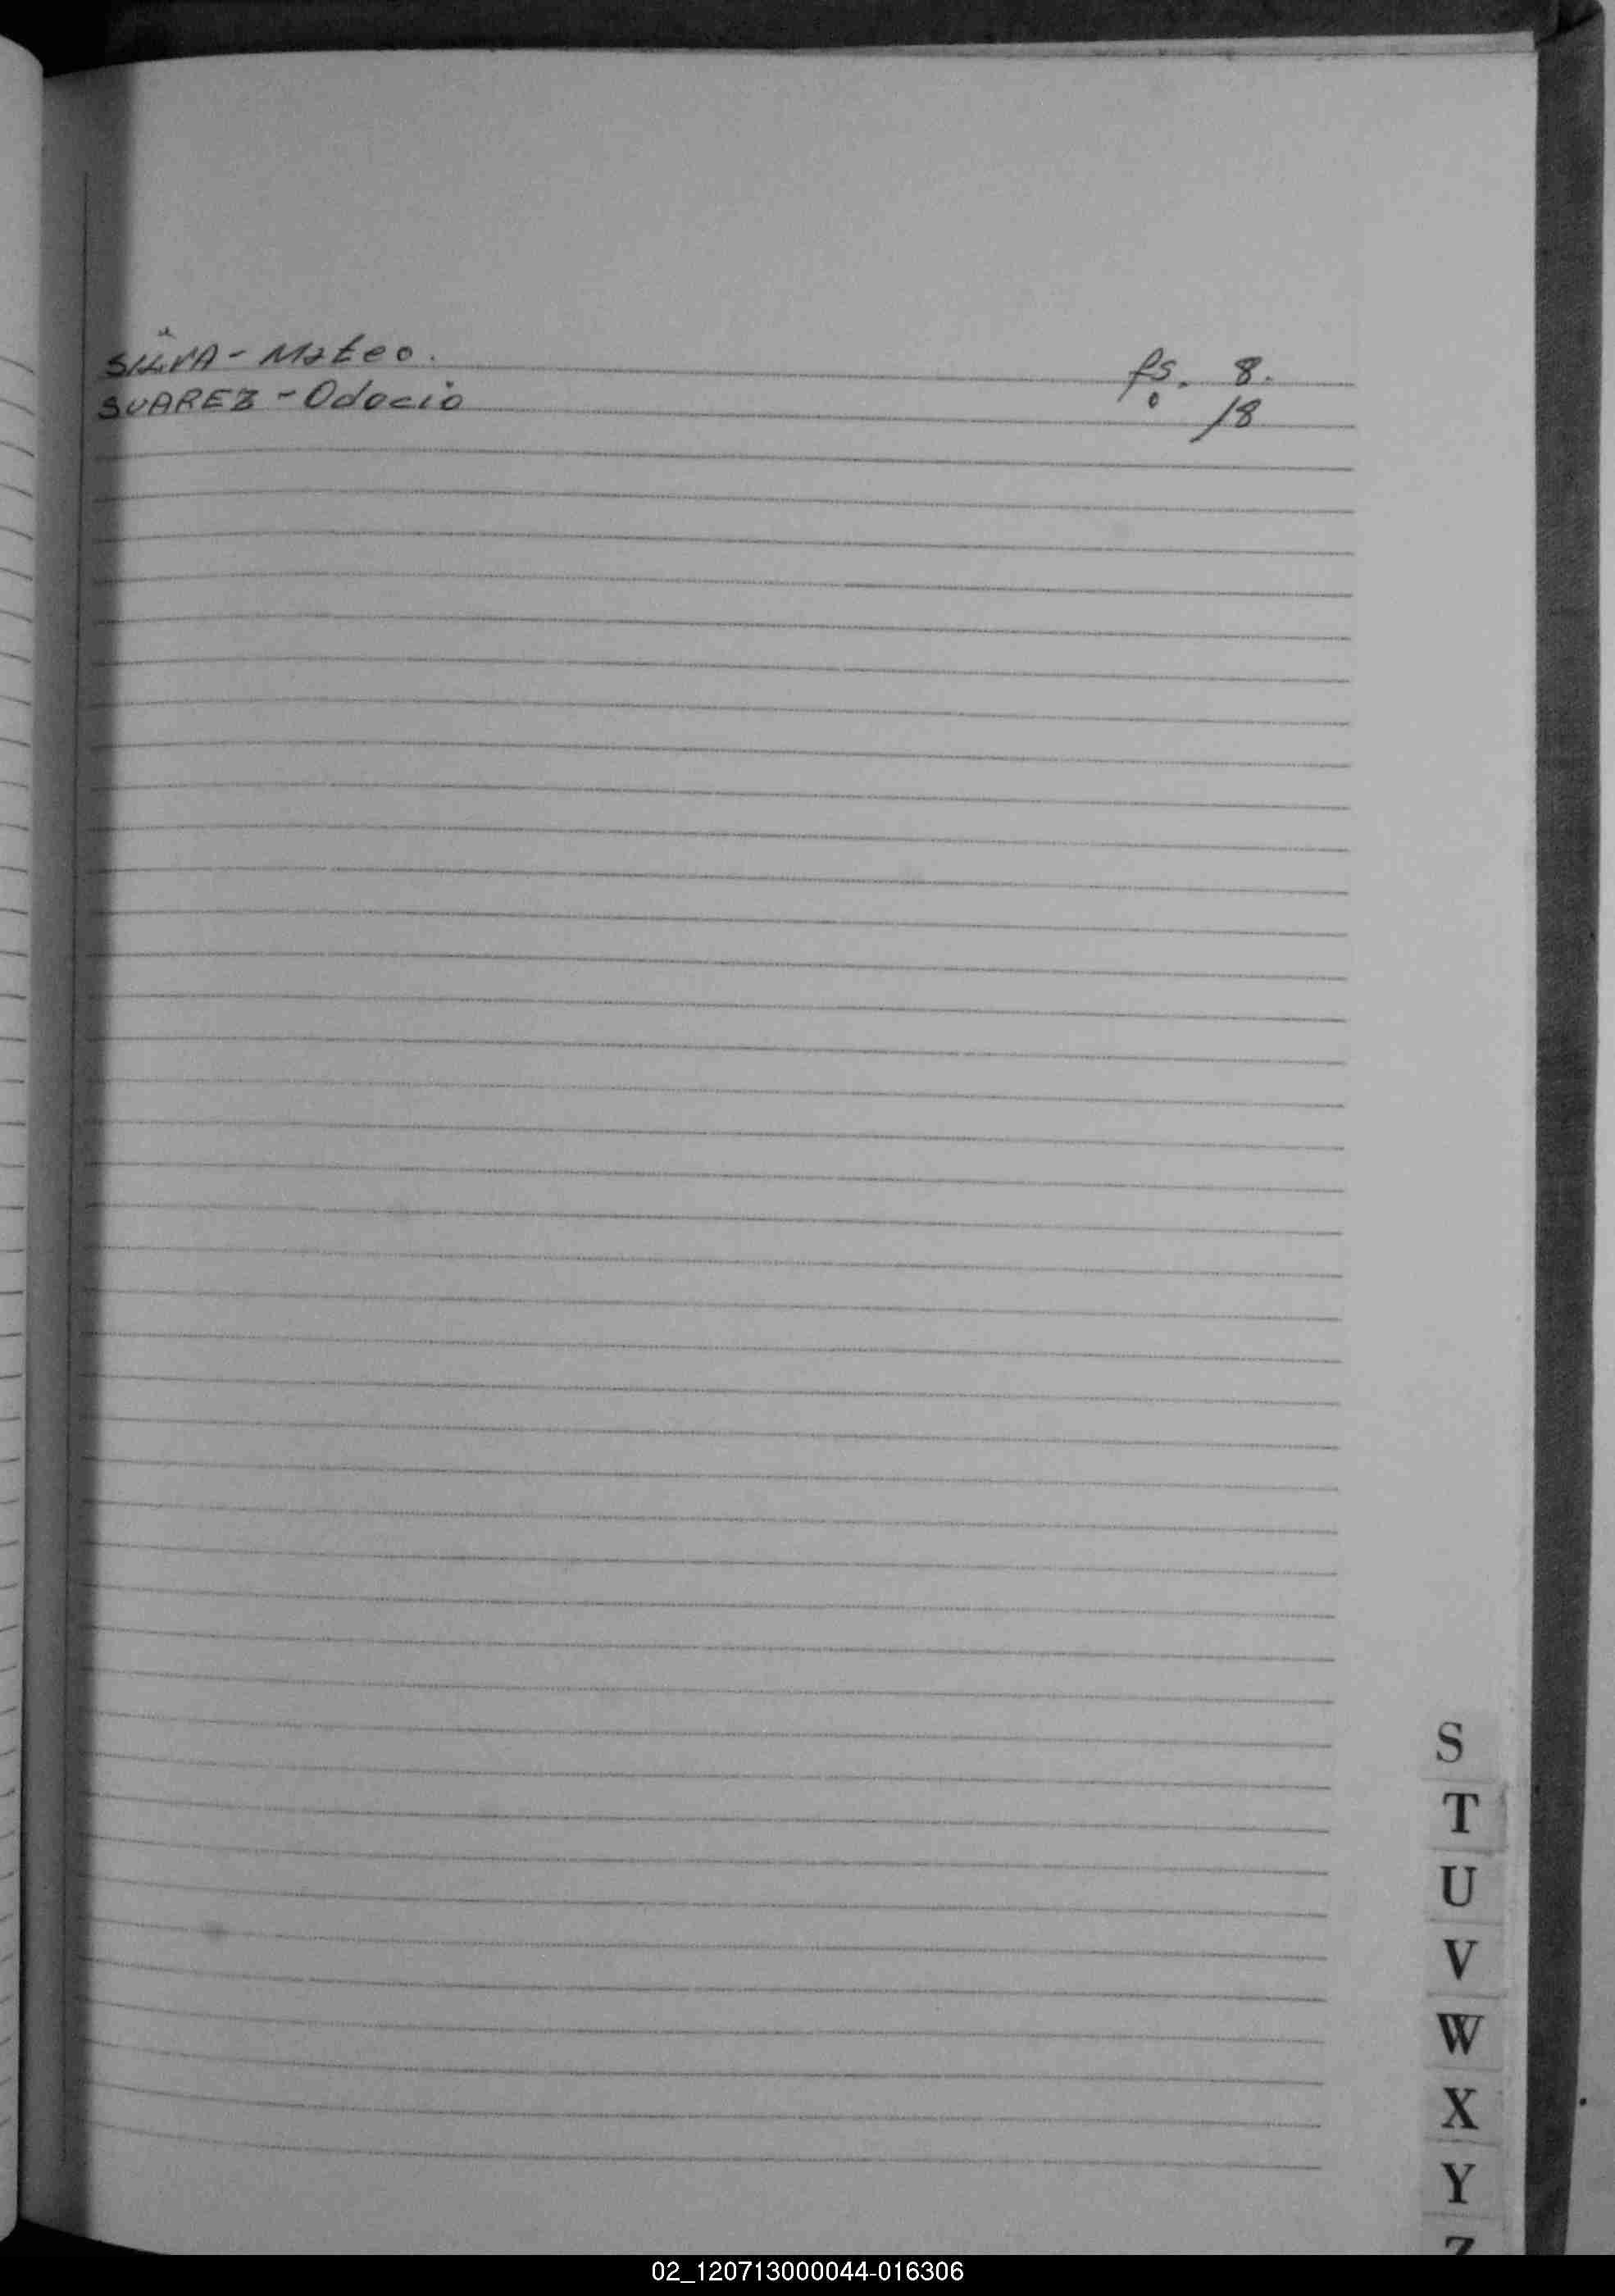 SILVA - Mateo. fs. 8.
SUAREZ - Odocio 18
S
T
U
V
W
X
Y
Z
02_120713000044-016306